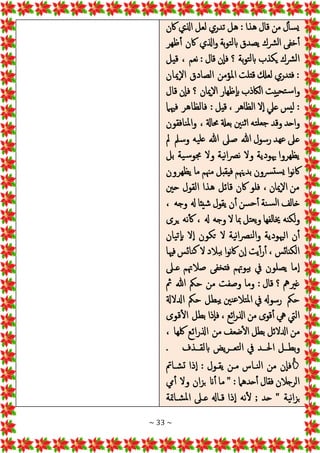 يسأل من قال هذا : هل تدري لعل الذي كان
أخفى الشرك يصدق بالتوبة والذي كان أظهر
الشرك يكذب بالتوبة ؟ فإن قال : نعم ، قيل
: فتدري لعلك قتلت المؤمن الصادق الإيمان
واستحييت الكاذب بإظهار الإيمان ؟ فإن قال
: ليس علي إلا الظاهر ، قيل : فالظاهر فيهما
واحد وقد جعلته اثنين بعلة محالة ، والمنافقون
على عهد رسول الله صلى الله عليه وسلم لم
يظهروا يهودية ولا نصرانية ولا مجوسية بل
كانوا يستسرون بدينهم فيقبل منهم ما يظهرون
من الإيمان ، فلو كان قائل هذا القول حين
خالف السنة أحسن أن يقول شيئا له وجه ،
ولكنه يخالفها ويعتل بما لا وجه له ، كأنه يرى
أن اليهودية والنصرانية لا تكون إلا بإتيان
الكنائس ، أرأيت إن كانوا ببلاد لا كنائس فيها
إما يصلون في بيوتهم فتخفى صلاتهم على
غيرهم ؟ قال : وما وصفت من حكم الله ثم
حكم رسوله في المتلاعنين يبطل حكم الدلالة
التي هي أقوى من الذرائع ، فإذا بطل الأقوى
من الدلائل بطل الأضعف من الذرائع كلها ،
وبطل الحد في التعريض بالقذف .
فإن من الناس من يقول : إذا تشاتم
الرجلان فقال أحدهما : " ما أنا بزان ولا أمي
بزانية " حد ; لأنه إذا قاله على المشاتمة
~ 33 ~